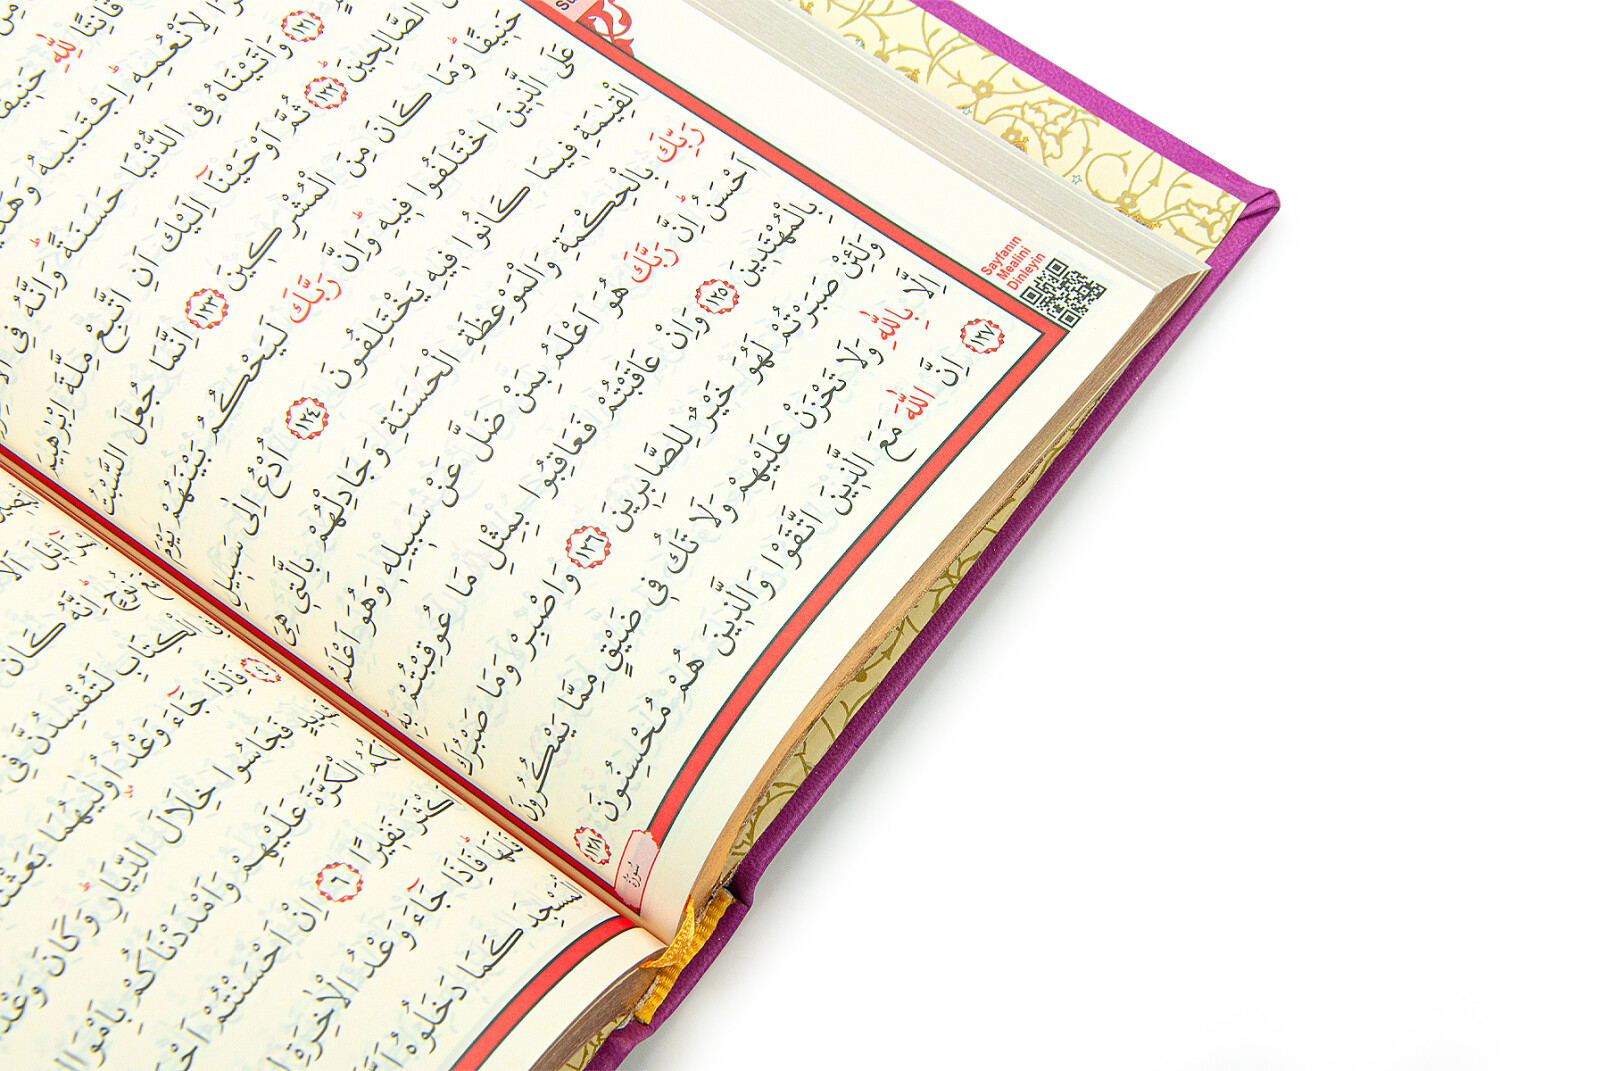 قَانِتًا لِلّٰهِ حَنِيفًا
لِاَنْعُمِهِۜ اِجْتَبٰيهُ
﴿١٢١﴾ وَاٰتَيْنَاهُ فِي الدُّنْيَا حَسَنَةًۜ وَاِنَّهُ فِي
الصَّالِحِينَۜ ﴿١٢٢﴾ ثُمَّ اَوْحَيْنَٓا اِلَيْكَ اَنِ اتَّبِعْ مِلَّةَ اِبْرٰهِيمَ
حَنِيفًاۜ وَمَا كَانَ مِنَ الْمُشْرِكِينَ ﴿١٢٣﴾ اِنَّمَا جُعِلَ السَّبْتُ
عَلَى الَّذِينَ اخْتَلَفُوا فِيهِۜ وَاِنَّ رَبَّكَ لَيَحْكُمُ بَيْنَهُمْ يَوْمَ
الْقِيٰمَةِ فِيمَا كَانُوا فِيهِ يَخْتَلِفُونَ ﴿١٢٤﴾ اُدْعُ اِلٰى سَبِيلِ
رَبِّكَ بِالْحِكْمَةِ وَالْمَوْعِظَةِ الْحَسَنَةِ وَجَادِلْهُمْ بِالَّتِي هِيَ
اَحْسَنُۜ اِنَّ رَبَّكَ هُوَ اَعْلَمُ بِمَنْ ضَلَّ عَنْ سَبِيلِهِ وَهُوَ اَعْلَمُ
بِالْمُهْتَدِينَ ﴿١٢٥﴾ وَاِنْ عَاقَبْتُمْ فَعَاقِبُوا بِمِثْلِ مَا عُوقِبْتُمْ بِهِۜ
وَلَئِنْ صَبَرْتُمْ لَهُوَ خَيْرٌ لِلصَّابِرِينَ ﴿١٢٦﴾ وَاصْبِرْ وَمَا صَبْرُكَ
اِلَّا بِاللّٰهِ وَلَا تَحْزَنْ عَلَيْهِمْ وَلَا تَكُ فِي ضَيْقٍ مِمَّا يَمْكُرُونَ
﴿١٢٧﴾ اِنَّ اللّٰهَ مَعَ الَّذِينَ اتَّقَوْا وَالَّذِينَ هُمْ مُحْسِنُونَ ﴿١٢٨﴾
Sayfanın
Mealini
Dinleyin
سُورَةُ
نُوحٍۜ اِنَّهُ كَانَ
الْكِتَابِ لَتُفْسِدُنَّ فِي
﴿٤﴾ فَاِذَا جَٓاءَ وَعْدُ اُولٰيهُمَا بَعَثْنَا
فَجَاسُوا خِلَالَ الدِّيَارِۜ وَكَانَ وَعْدًا
الْكَرَّةَ عَلَيْهِمْ وَاَمْدَدْنَاكُمْ بِاَمْوَالٍ
اَكْثَرَ نَفِيرًا ﴿٦﴾ اِنْ اَحْسَنْتُمْ
فَلَهَاۜ فَاِذَا جَٓاءَ وَعْدُ الْاٰخِرَةِ
الْمَسْجِدَ كَمَا دَخَلُوهُ اَوَّلَ